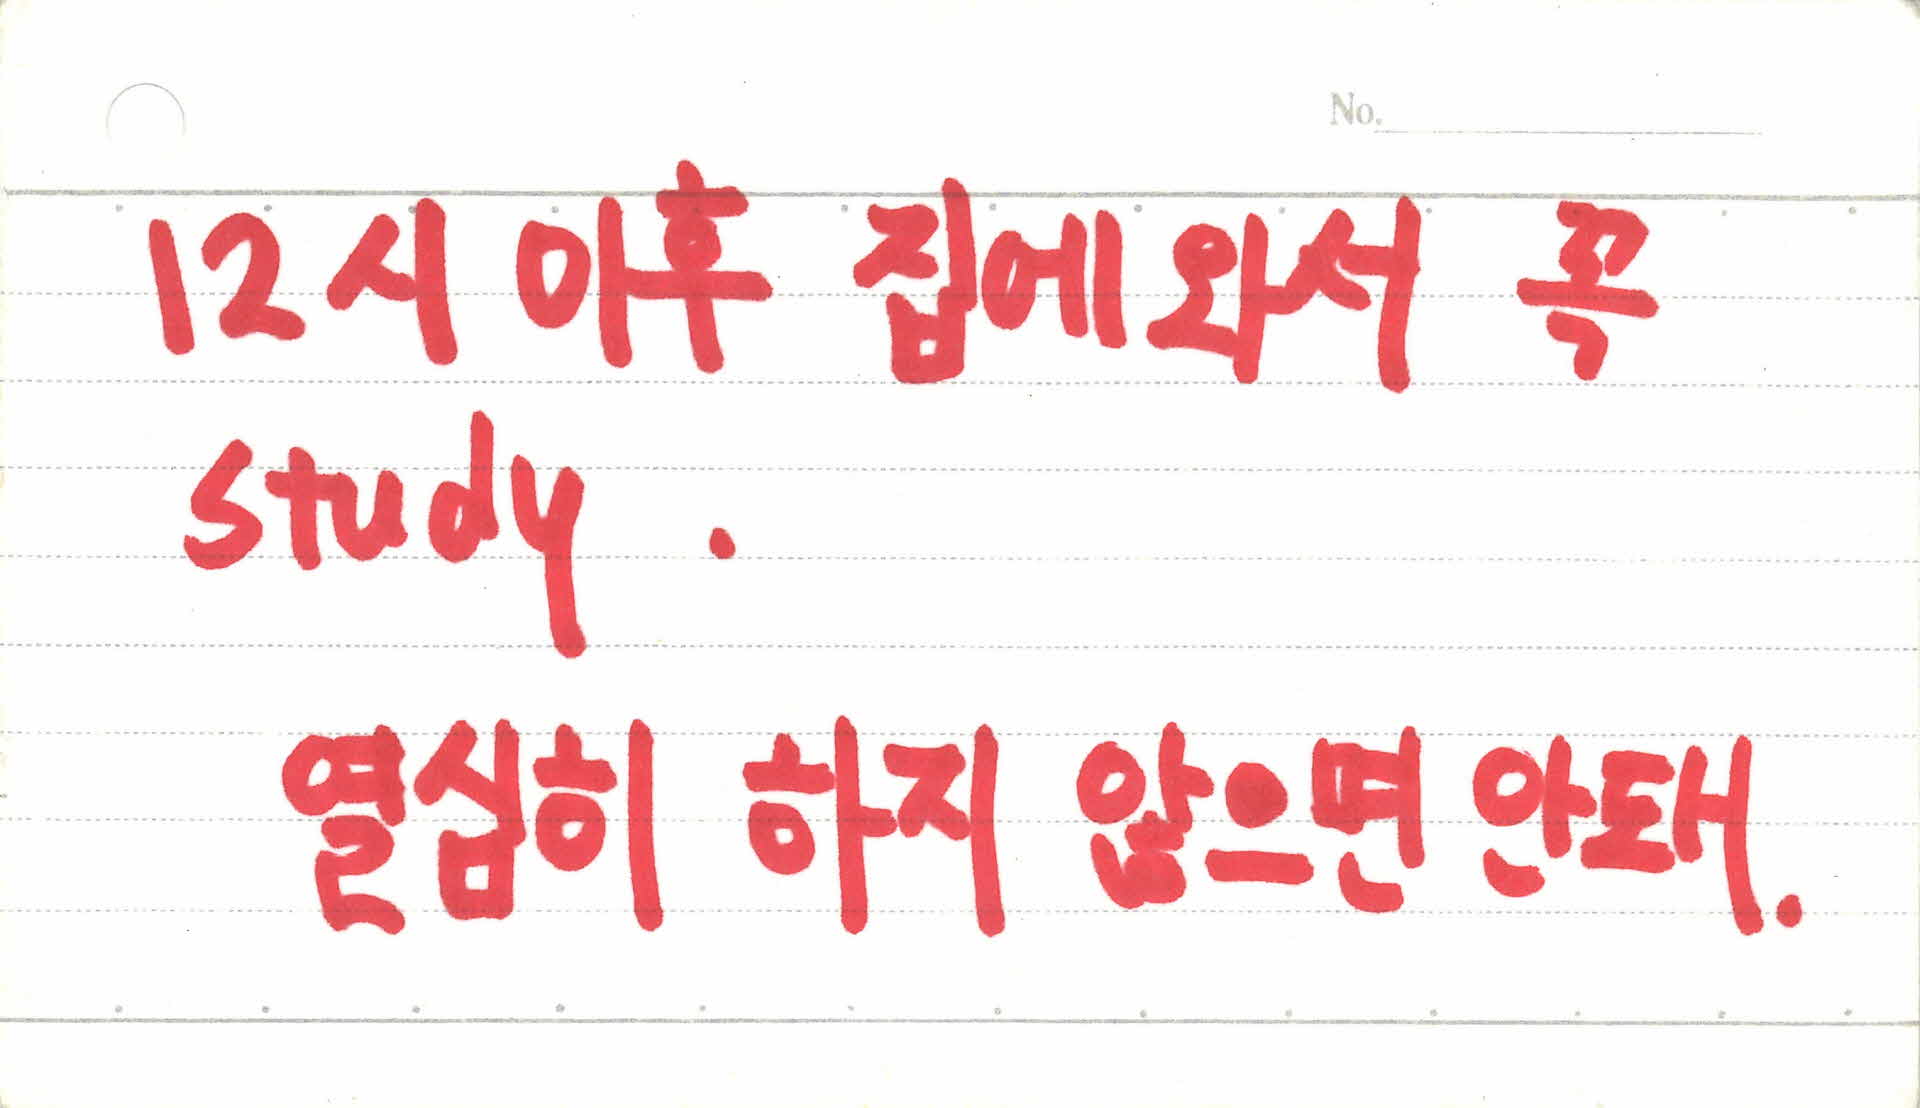 No.
12시 이후 집에 와서 꼭
study .
열심히 하지 않으면 안돼.